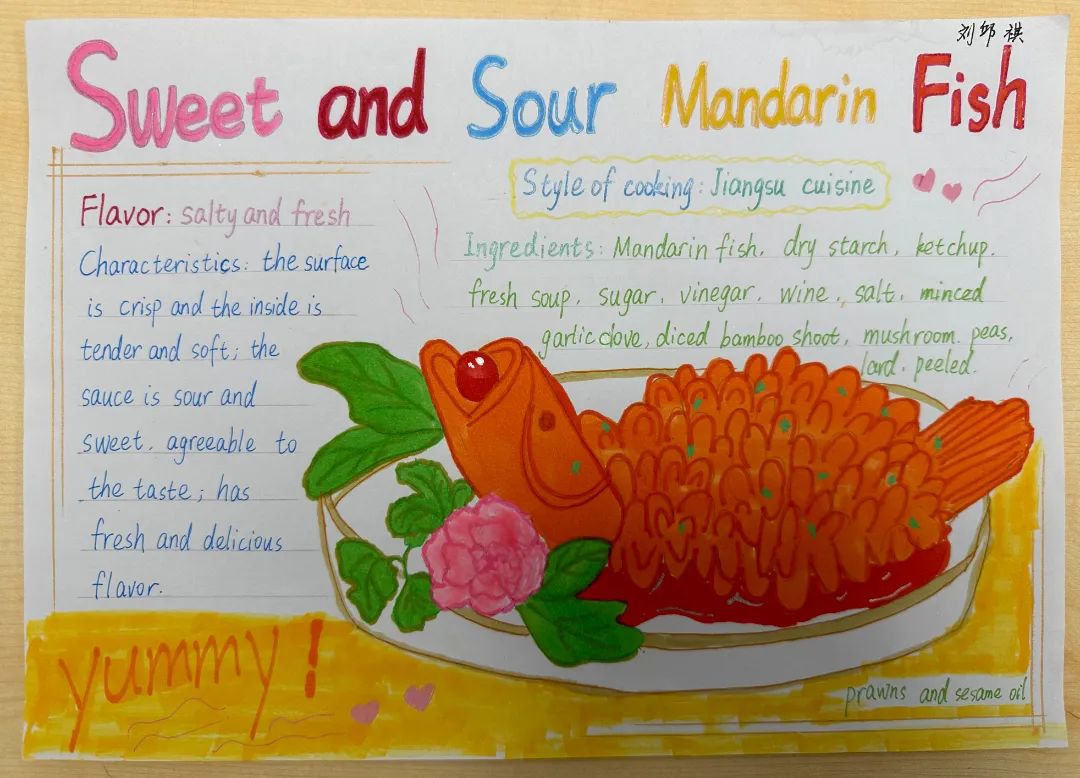 刘邱祺
Sweet and Sour Mandarin Fish
Style of cooking: Jiangsu cuisine
Flavor: salty and fresh
Characteristics: the surface
is crisp and the inside is
tender and soft; the
sauce is sour and
sweet, agreeable to
the taste; has
fresh and delicious
flavor.
Ingredients: Mandarin fish, dry starch, ketchup,
fresh soup, sugar, vinegar, wine, salt, minced
garlic clove, diced bamboo shoot, mushroom, peas,
lard, peeled
prawns and sesame oil
yummy!